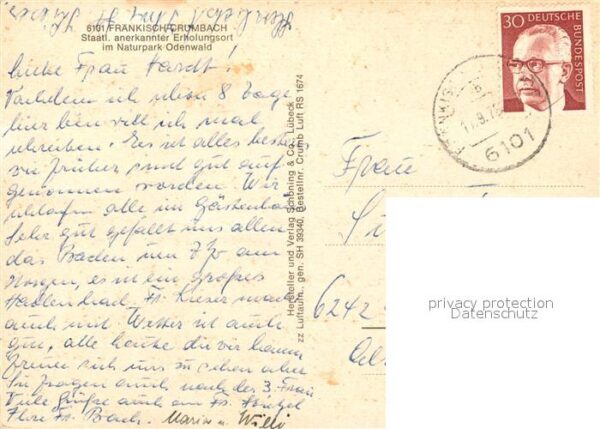 6101 FRÄNKISCH-CRUMBACH
Staatl. anerkannter Erholungsort
im Naturpark Odenwald
Liebe Frau Hardt!
Nachdem ich schon 8 Tage
hier bin will ich mal
schreiben. Es ist alles bestens
wie früher sind gut auf
genommen worden. Wir
schlafen alle im Gästehaus
Sehr gut gefällt uns allen
das Baden um 7 h am
Morgen, es ist ein großes
Hallenbad. Fr. Kieser macht
auch mit. Wetter ist auch
gut, alle Leute die wir kennen
freuen sich uns zu sehen aber
Sie fragen auch nach der 3. Frau
Viele Grüße auch an Fr.
Ihre Fr. Bach. Marian u. Willi
Hersteller und Verlag Schöning & Co., Lübeck
zz Luftaufn., gen. SH 39340, Bestellnr. Crumb Luft RS 1674
30 DEUTSCHE
BUNDESPOST
6101
Frau
6242
privacy protection
Datenschutz